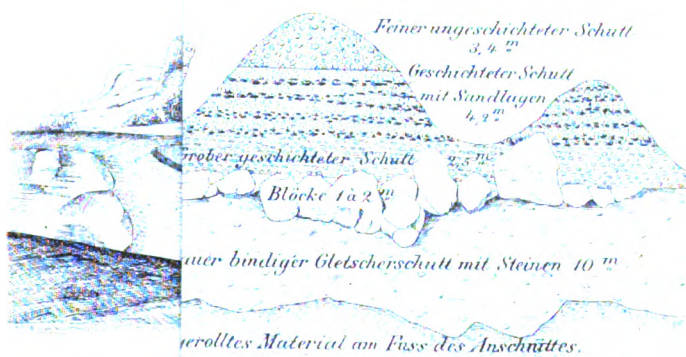 Feiner ungeschichteter Schutt
3,4 m
Geschichteter Schutt
mit Sandlagen
4,2 m
Grober geschichteter Schutt 2,5 m
Blöcke 1 à 2 m
auer bindiger Gletscherschutt mit Steinen 10 m
gerolltes Material am Fuss des Anschnittes.